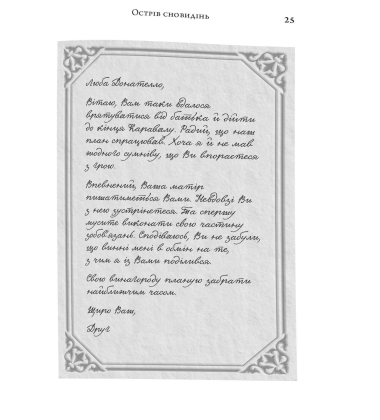 Острів сновидінь
25
Люба Донателло,
Вітаю, Вам таки вдалося
врятуватися від батька й дійти
до кінця Каравалу. Радий, що наш
план спрацював. Хоча я й не мав
жодного сумніву, що Ви впораєтеся
з грою.
Впевнений, Ваша матір
пишатиметься Вами. Невдовзі Ви
з нею зустрінетеся. Та спершу
мусите виконати свою частину
зобов'язань. Сподіваюсь, Ви не забули,
що винні мені в обмін на те,
з чим я із Вами поділився.
Свою винагороду планую забрати
найближчим часом.
Щиро Ваш,
Друг